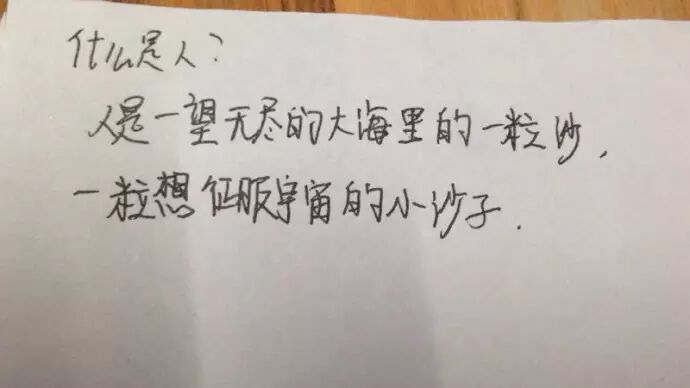 什么是人?
人是一望无尽的大海里的一粒沙,
一粒想征服宇宙的小沙子.